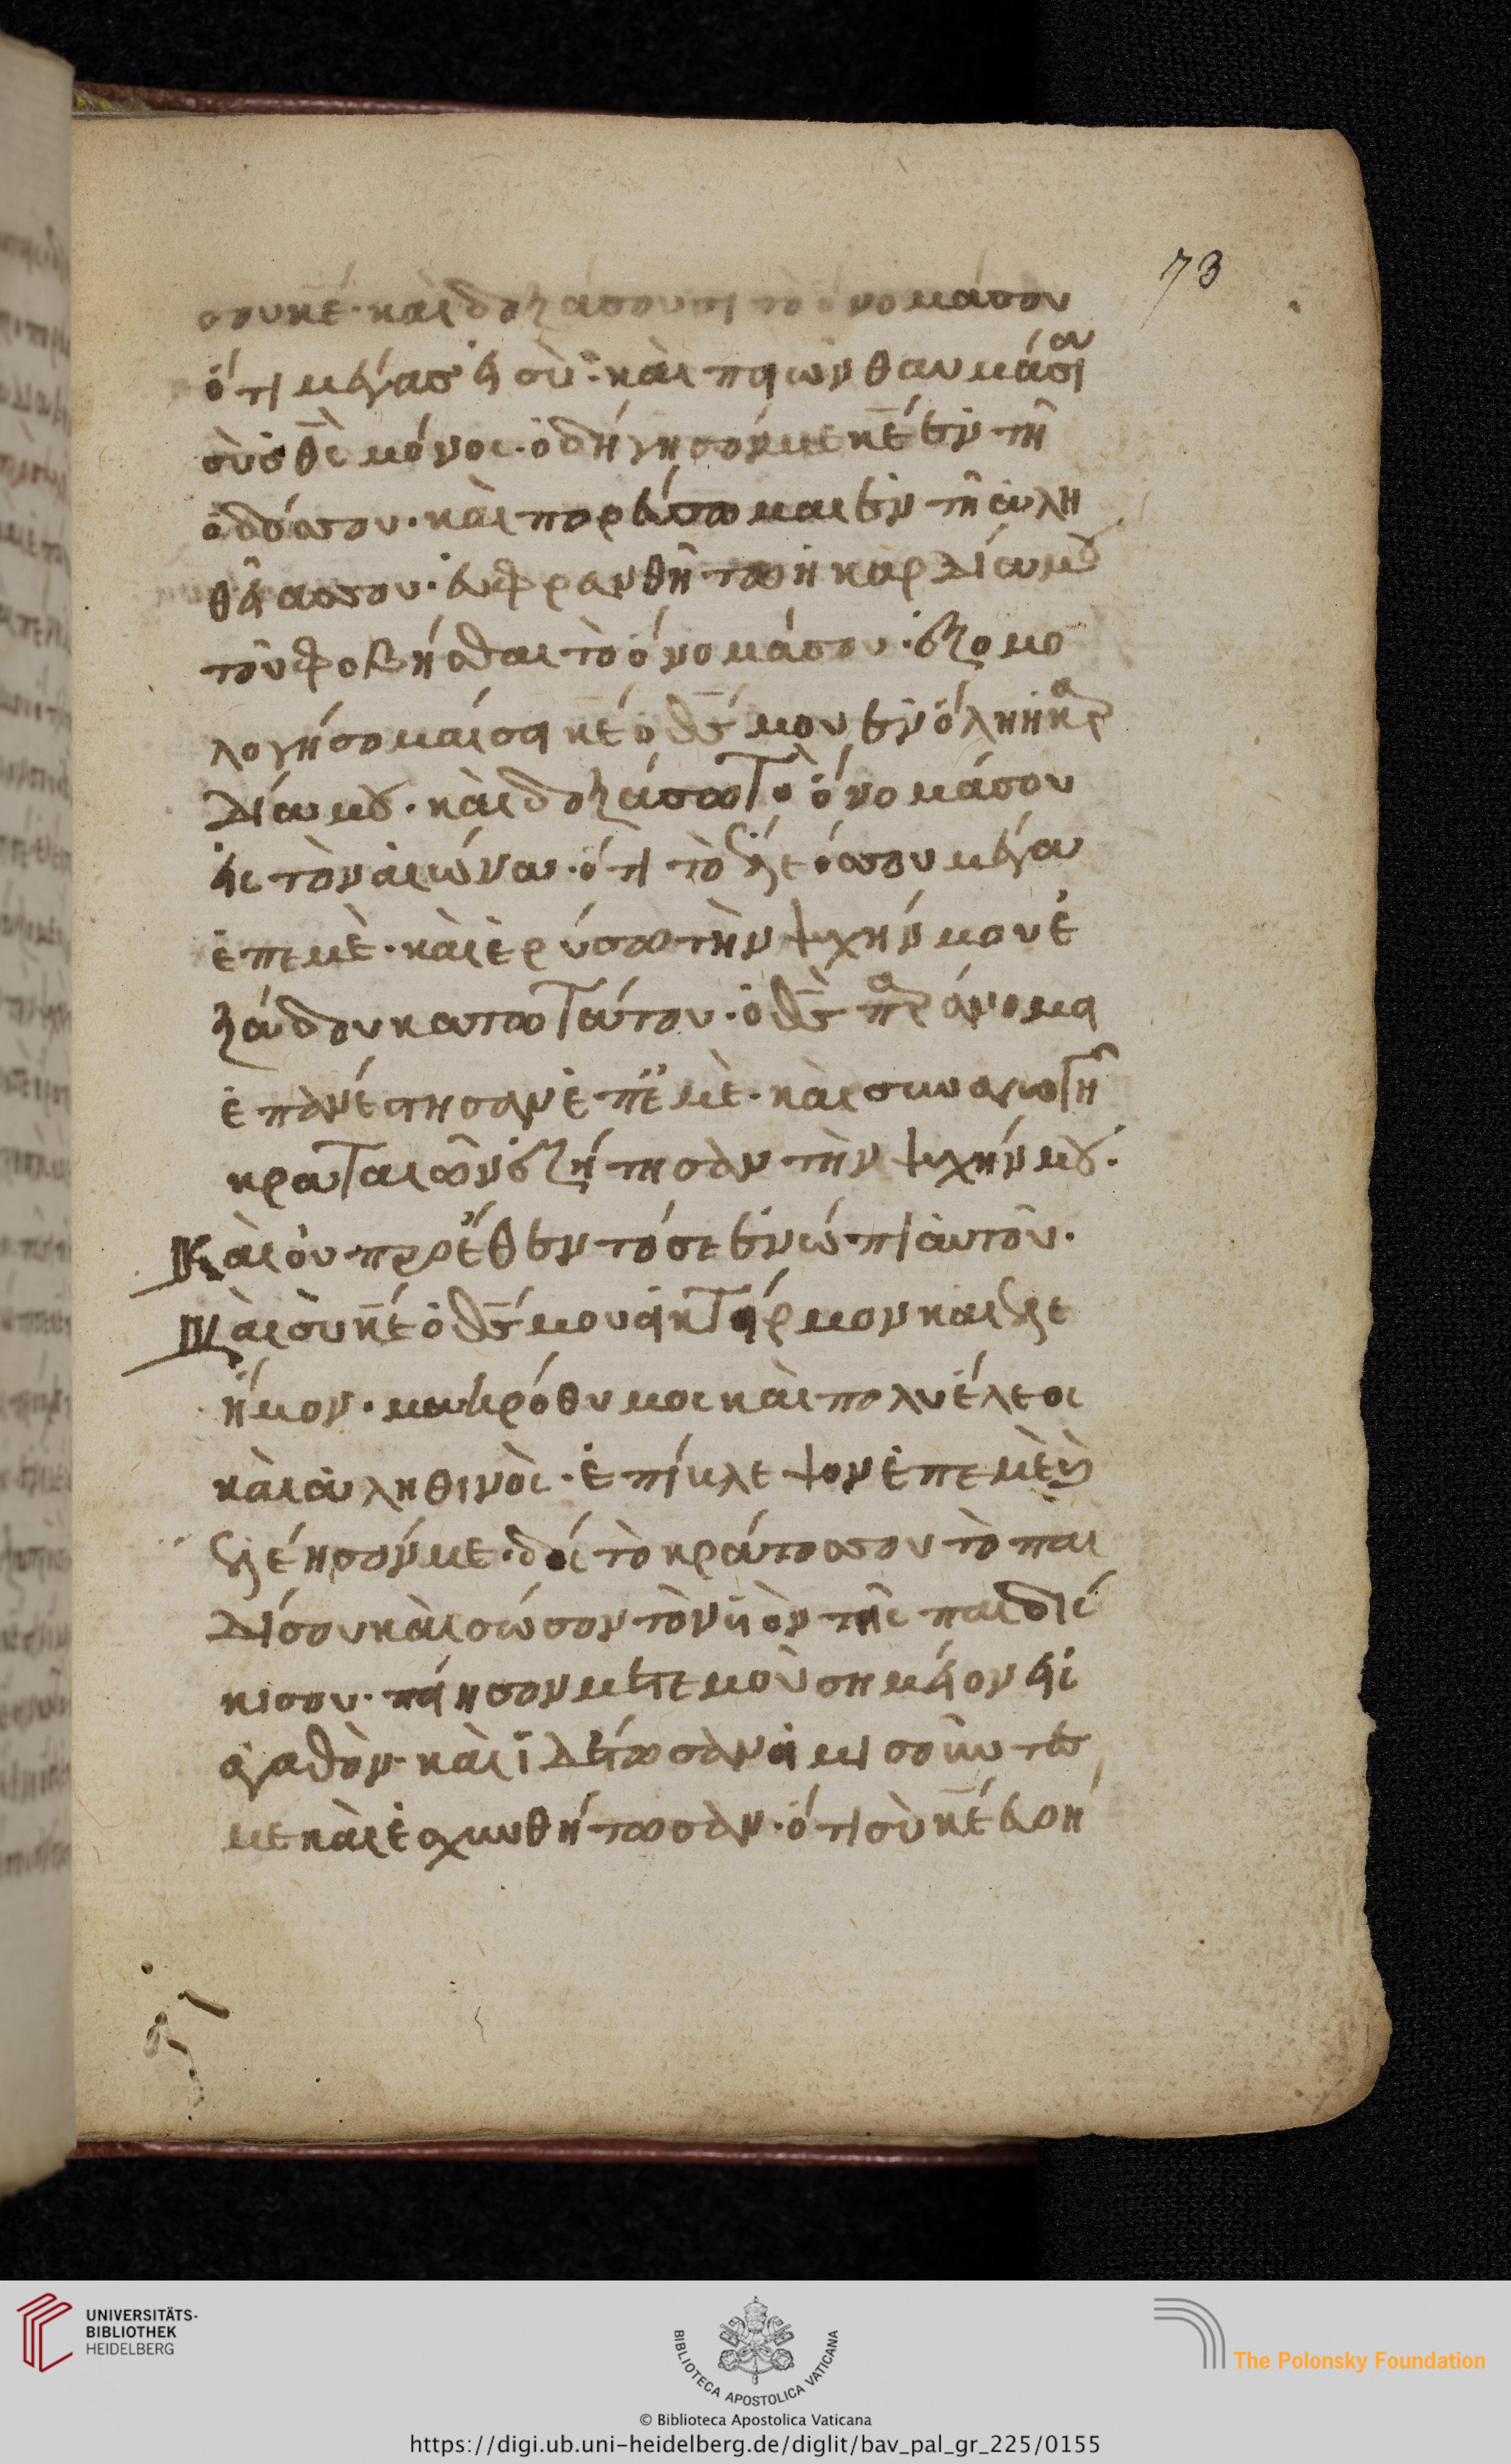 73
σου κε̅· καὶ δοξάσουσι τὸ ὄνομάσου
ὅτι μέγας εἶ σὺ· καὶ ποιῶν θαυμάσια
σὺ εἶ θς̅ μόνος· ὁδήγησόν με κε̅ ἐν τῆ
ὁδῶσου· καὶ πορεύσομαι ἐν τῆ ἀλη
θείασου· εὐφρανθήτω ἡ καρδία μου
τοῦ φοβῆσθαι τὸ ὄνομάσου· ἐξομο
λογήσομαίσοι κε̅ ὁ θς̅ μου ἐν ὅλη καρ
δία μου· καὶ δοξάσω τὸ ὄνομάσου
εἰς τὸν αἰῶνα· ὅτι τὸ ἔλεόσσου μέγα
ἐπεμὲ· καὶ ἐρύσω τὴν ψυχήν μου ἐ
ξάδου κατωτάτου· ὁ θς̅ παράνομοι
ἐπανέστησαν ἐπεμὲ· καὶ συναγωγὴ
κραταιῶν ἐζήτησαν τὴν ψυχήν μου·
Καὶ οὐ προέθεντό σε ἐνώπι αὐτῶν·
Καὶ σὺ κε̅ ὁ θς̅ μου οἰκτείρμον καὶ ἐλε
ήμον· μακρόθυμος καὶ πολυέλεος
καὶ ἀληθινὸς· ἐπίβλεψον ἐπεμὲ καὶ
ἐλέησόν με· δὸς τὸ κράτοσσου τὸ παι
δίσου καὶ σῶσον τὸν υἱὸν τῆς παιδί
κισου· ποίησον μετεμοῦ σημεῖον εἰς
ἀγαθὸν· καὶ ἰδέτωσαν οἱ μισοῦντές
με καὶ ἐσχυνθήτωσαν· ὅτι σὺ κε̅ ἐβοή
UNIVERSITÄTS-
BIBLIOTHEK
HEIDELBERG
BIBLIOTECA APOSTOLICA VATICANA
© Biblioteca Apostolica Vaticana
The Polonsky Foundation
https://digi.ub.uni-heidelberg.de/diglit/bav_pal_gr_225/0155